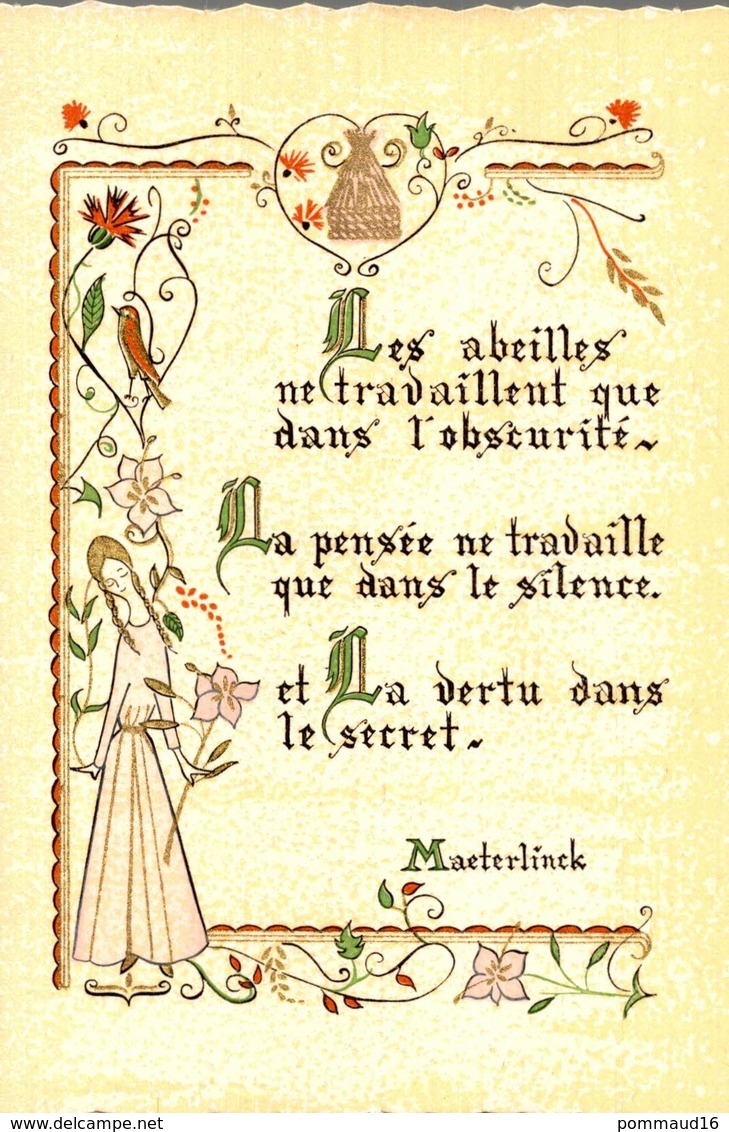 Les abeilles
ne travaillent que
dans l'obscurité~
La pensée ne travaille
que dans le silence.
et La vertu dans
le secret~
Maeterlinck
www.delcampe.net
pommaud16